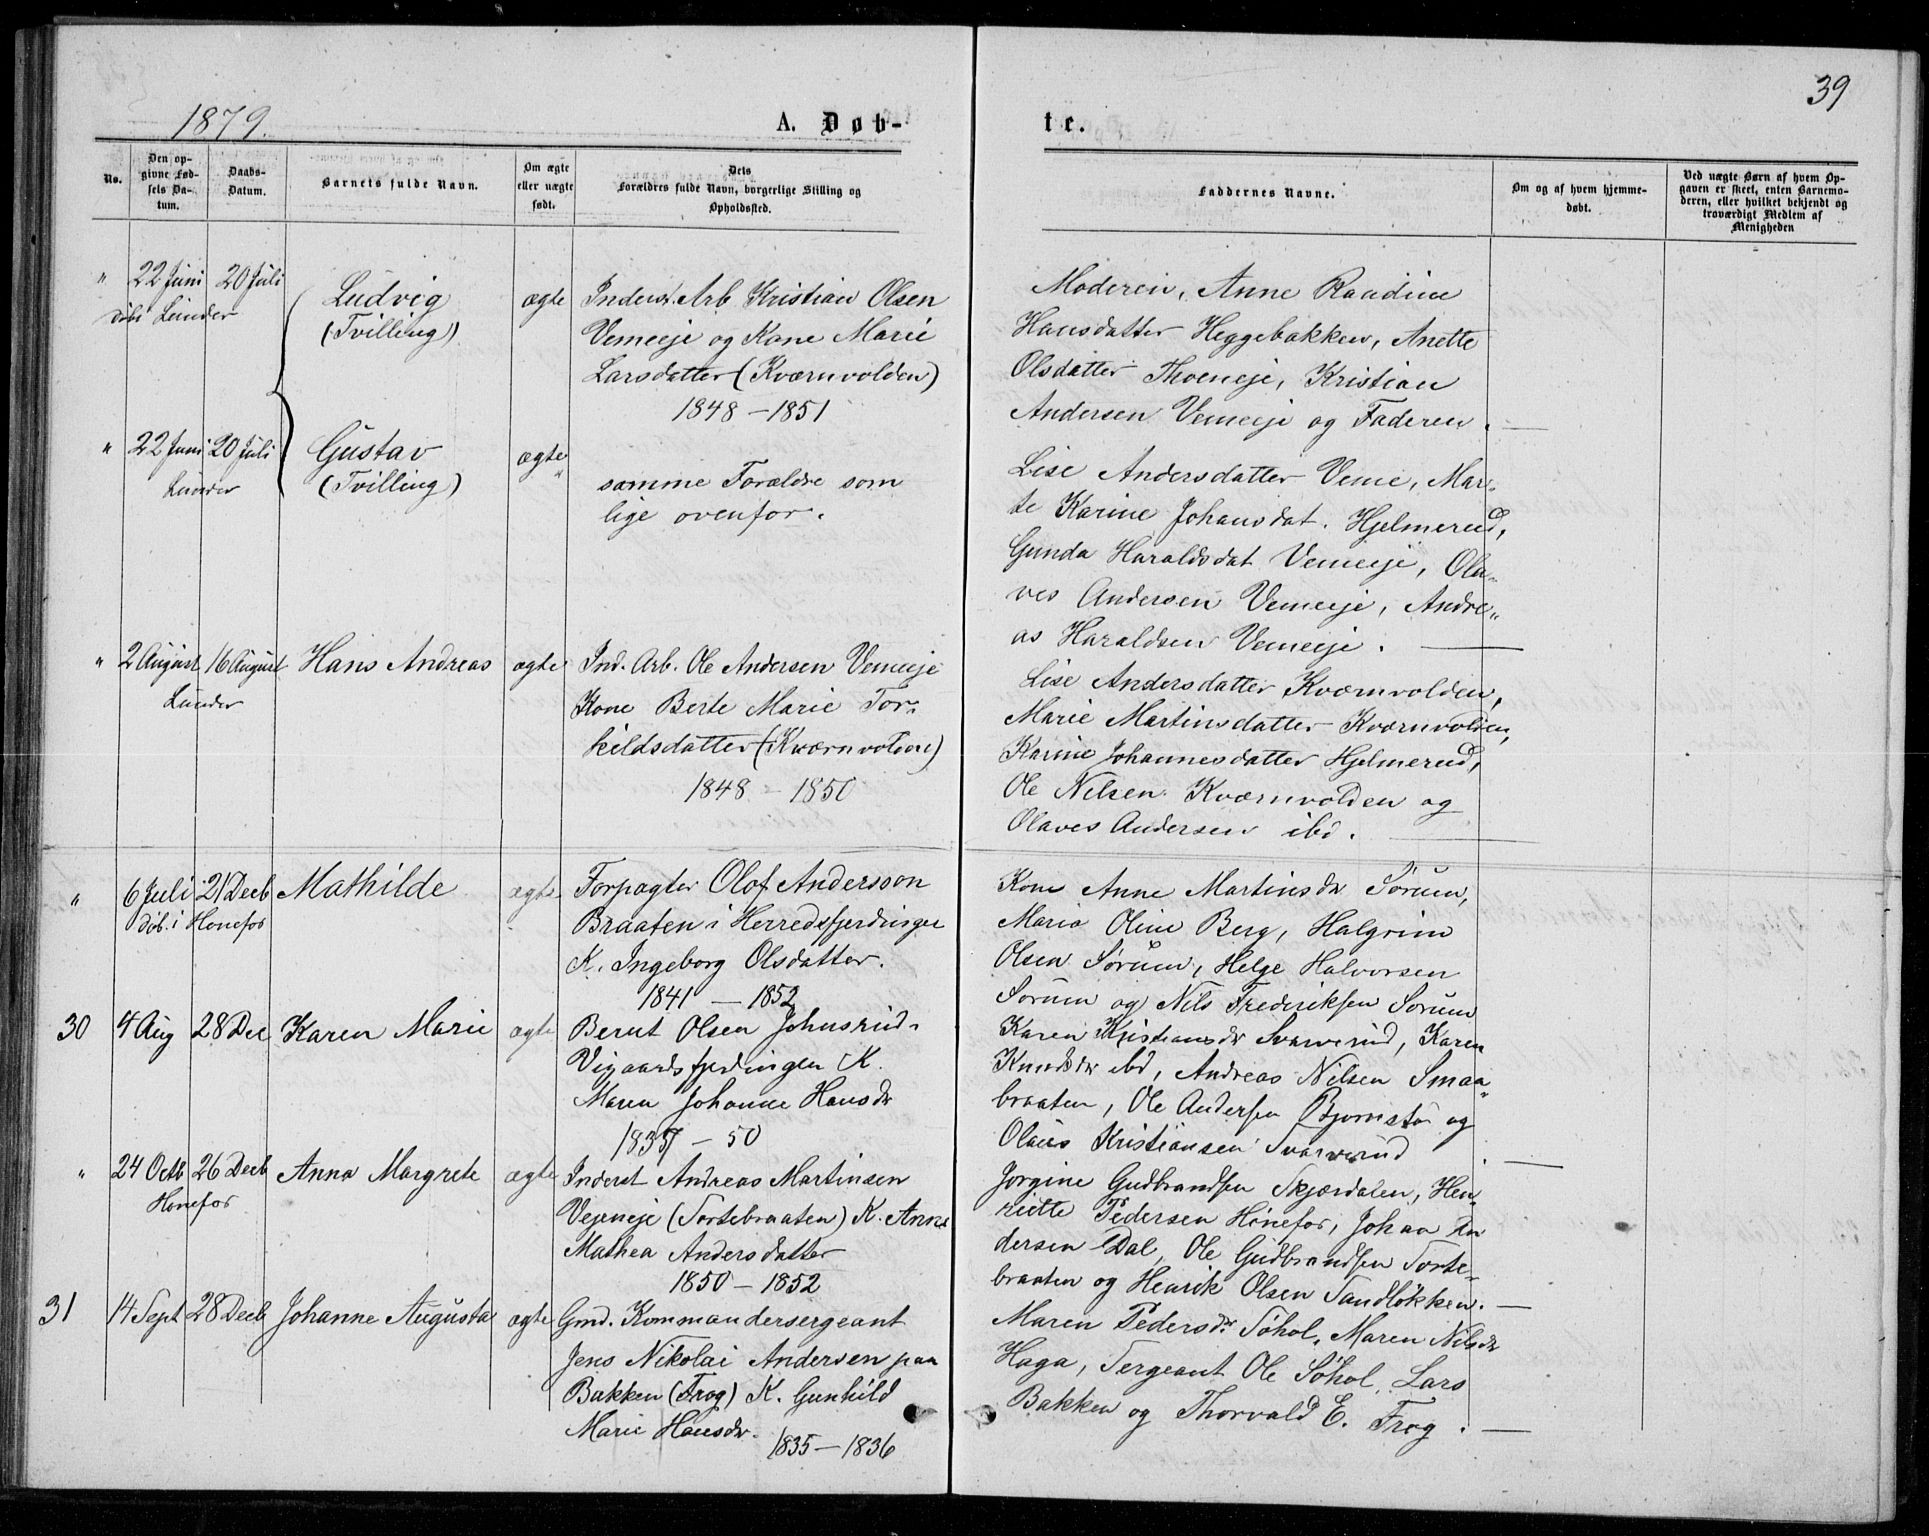 39
1879.
A. Døb-
te.
No.
Den op-
givne Fød-
sels Da-
tum.
Daabs-
Datum.
Barnets fulde Navn.
Om ægte
eller uægte
født.
Dets
Forældres fulde Navn, borgerlige Stilling og
Opholdssted.
Faddernes Navne.
Om og af hvem hjemme-
døbt.
Ved uægte Børn af hvem Op-
gaven er skeet, enten Barnemo-
deren, eller hvilket bekjendt og
troværdigt Medlem af
Menigheden
" 22 Juni 20 Juli
døbt Lunder
Ludvig
(Tvilling)
ægte
Inderst. Arb. Kristian Olsen
Vemeeje og Kone Marie
Larsdatter (Kværnvolden)
1848 - 1851
Moderen, Anne Randine
Hansdatter Heggebakken, Anette
Olsdatter Thoeneje, Kristian
Andersen Vemeeje og Faderen.
" 22 Juni 20 Juli
Lunder
Gustav
(Tvilling)
ægte
"
samme Forældre som
lige ovenfor.
Lise Andersdatter Veme, Mar-
te Karine Johansdat. Hjelmerud,
Gunda Haraldsdat Vemeeje, Ola-
ves Andersen Vemeeje, Andre-
as Haraldsen Vemeeje.
" 2 August 16 August
Lunder
Hans Andreas
ægte
Ind. Arb. Ole Andersen Vemeeje
Kone Berte Marie Tor-
kildsdatter (Kværnvolden)
1848 - 1850
Lise Andersdatter Kværnvolden,
Marie Martinsdatter Kværnvolden,
Karine Johannesdatter Hjelmerud,
Ole Nilsen Kværnvolden og
Olaves Andersen ibd.
" 6 Juli 21 Decb
døb. i Hønefos
Mathilde
ægte
Forpagter Olof Andersson
Braaten i Herredsfjerdingen
K. Ingeborg Olsdatter.
1841 - 1852
Kone Anne Martinsdr Sørum,
Maria Oline Berg, Halgrim
Olsen Sørum, Helge Halvorsen
Sørum og Nils Frederiksen Sørum
30 4 Aug 28 Dec
Karen Marie
ægte
Bernt Olsen Johnsrud
Vigaardsfjerdingen K.
Maren Johanne Hansdr
1837 - 50
Karen Kristiansdr Svarverud, Karen
Knudsdr ibd, Andreas Nilsen Smaa-
braaten, Ole Andersen Bjørnstø og
Olaus Kristiansen Svarverud
" 24 Octb 26 Decb
Hønefos
Anna Margrete
ægte
Inderst Andreas Martinsen
Vejeneje (Tortebraaten) K. Anne
Mathea Andersdatter
1850 - 1852
Jørgine Gudbrandsen Skjærdalen, Hen-
riette Pedersen Hønefos, Johan An
dersen Dal, Ole Gudbrandsen Torte-
braaten og Henrik Olsen Tandløkken.
31 14 Sept 28 Decb
Johanne Augusta
ægte
Gmd. Kommandersergeant
Jens Nikolai Andersen paa
Bakken (Frog) K. Gunhild
Marie Hansdr.
1835 - 1836
Maren Pedersdr. Søhol, Maren Nilsdr
Haga, Sergeant Ole Søhol, Lars
Bakken og Thorvald E. Frog.